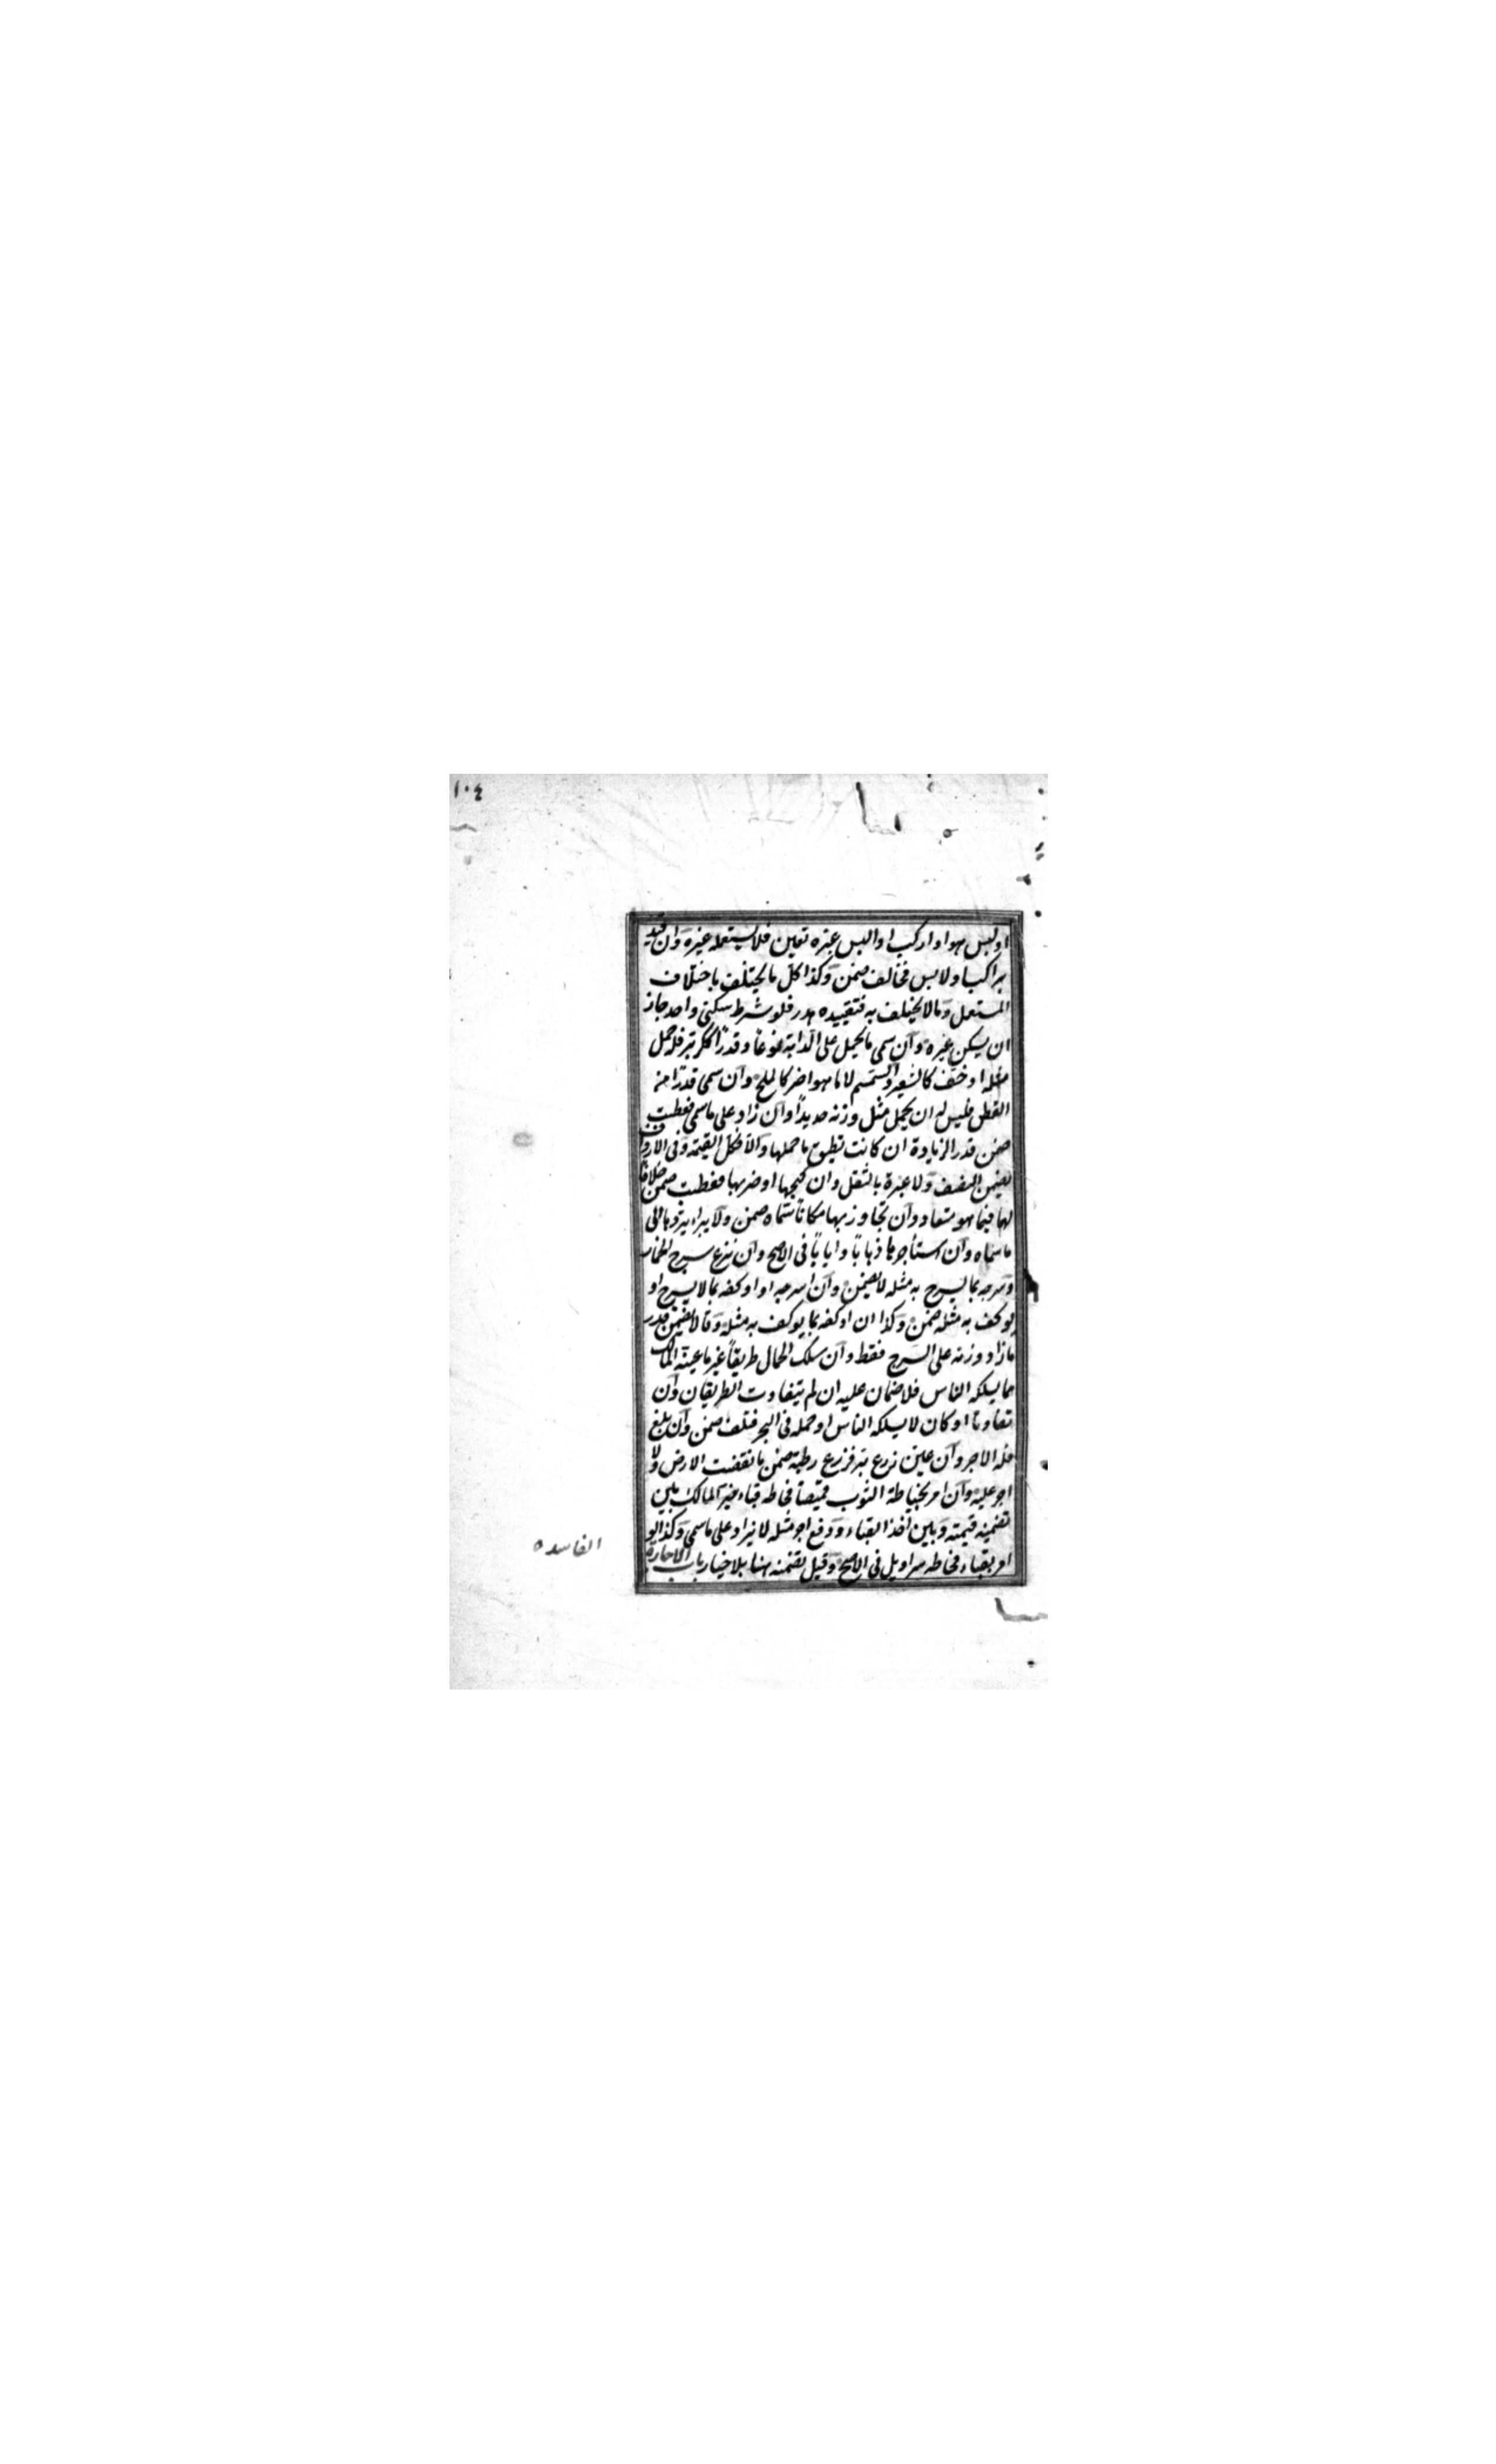 ١٠٤
او لبس هو او اركب او البس غيره تعين فلا يستعمله غيره وان قيد
براكب او لابس فخالف ضمن وكذا كل ما يختلف باختلاف
المستعمل وما لا يختلف به فتقييده هدر فلو شرط سكنى واحد جاز
ان يسكن غيره وان سمى ما يحمل على الدابة نوعا وقدرا ككر بر فله حمل
مثله او خف كالشعير والسمسم لا ما هو اضر كالملح وان سمى قدرا من
القطن فليس له ان يحمل مثل وزنه حديدا وان زاد على ما سمى فعطبت
ضمن قدر الزيادة ان كانت تطيق ما حملها والا فكل القيمة وفى الارداف
يضمن النصف ولا عبرة بالثقل وان كبحها او ضربها فعطبت ضمن خلافا
لهما فيما هو متعاد وان تجاوز بها مكانا سماه ضمن ولا يبراء بردها الى
ما سماه وان استأجرها ذهابا وايابا فى الاصح وان نزع سرج الحمار
وسرجه بما يسرج به مثله لا يضمن وان اسرجه او اوكفه بما لا يسرج او
يوكف به مثله ضمن وكذا ان اوكفه بما يوكف به مثله وقالا يضمن قدر
ما زاد وزنه على السرج فقط وان سلك الحمال طريقا غير ما عينه المالك
مما يسلكه الناس فلا ضمان عليه ان لم يتفاوت الطريقان وان
تفاوتا او كان لا يسلكه الناس او حمله فى البحر فتلف ضمن وان بلغ
فله الاجر وان عين زرع بر فزرع رطبة ضمن ما نقصت الارض ولا
اجر عليه وان امر بخياطة الثوب قميصا فخاطه قباء خير المالك بين
تضمينه قيمته وبين اخذ القباء ودفع اجر مثله لا يزاد على ما سمى وكذا لو
امر بقباء فخاطه سراويل فى الاصح وقيل يضمنه هنا بلا خيار باب الاجارة
الفاسده